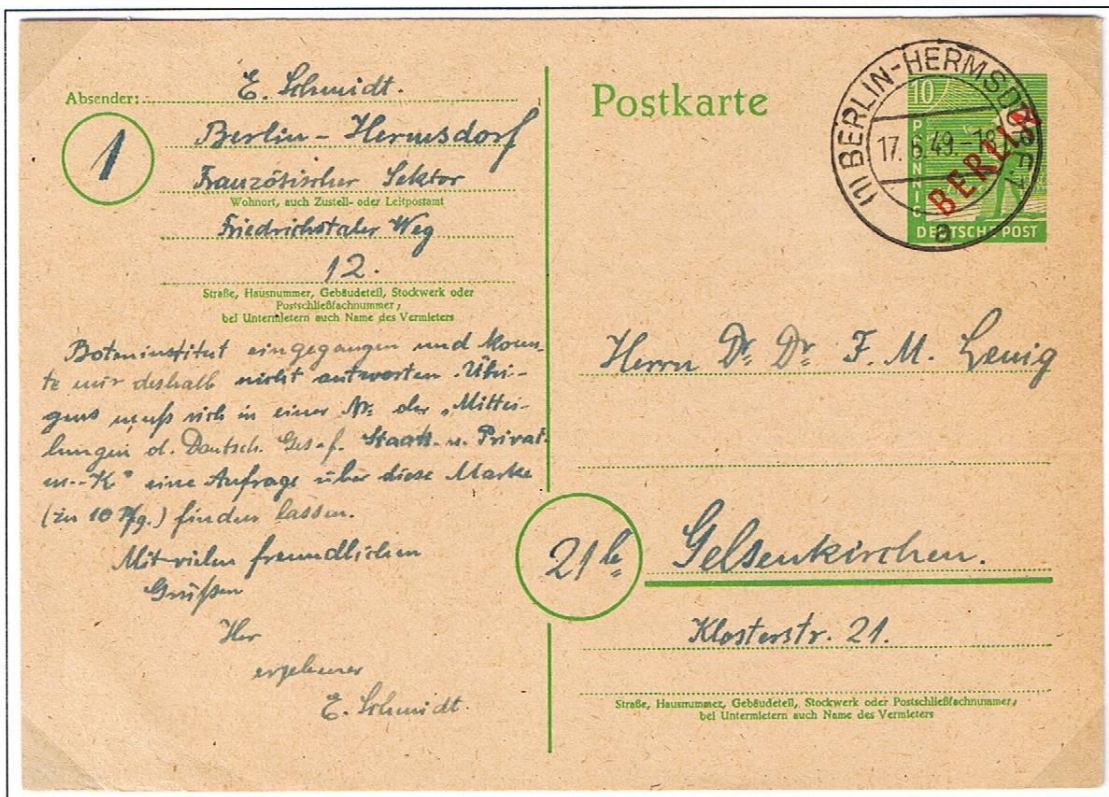 Absender: E. Schmidt.
1
Berlin-Hermsdorf
Französischer Sektor
Wohnort, auch Zustell- oder Leitpostamt
Friedrichstaler Weg
12.
Straße, Hausnummer, Gebäudeteil, Stockwerk oder
Postschließfachnummer,
bei Untermietern auch Name des Vermieters
Boteninstitut eingegangen und konn-
te mir deshalb nicht antworten. Übri-
gens muß sich in einer Nr. der „Mittei-
lungen d. Deutsch. Ges. f. Staats- u. Privat-
-K" eine Anfrage über diese Marke
(zu 10 Pfg.) finden lassen.
Mit vielen freundlichen
Grüßen
Ihr
ergebener
E. Schmidt.
Postkarte
10
PFENNIG
BERLIN
DEUTSCHE POST
(1) BERLIN-HERMSDORF 1
17.6.49.-18
a
Herrn Dr. Dr. F. M.
21b
Gelsenkirchen.
Klosterstr. 21.
Straße, Hausnummer, Gebäudeteil, Stockwerk oder Postschließfachnummer,
bei Untermietern auch Name des Vermieters